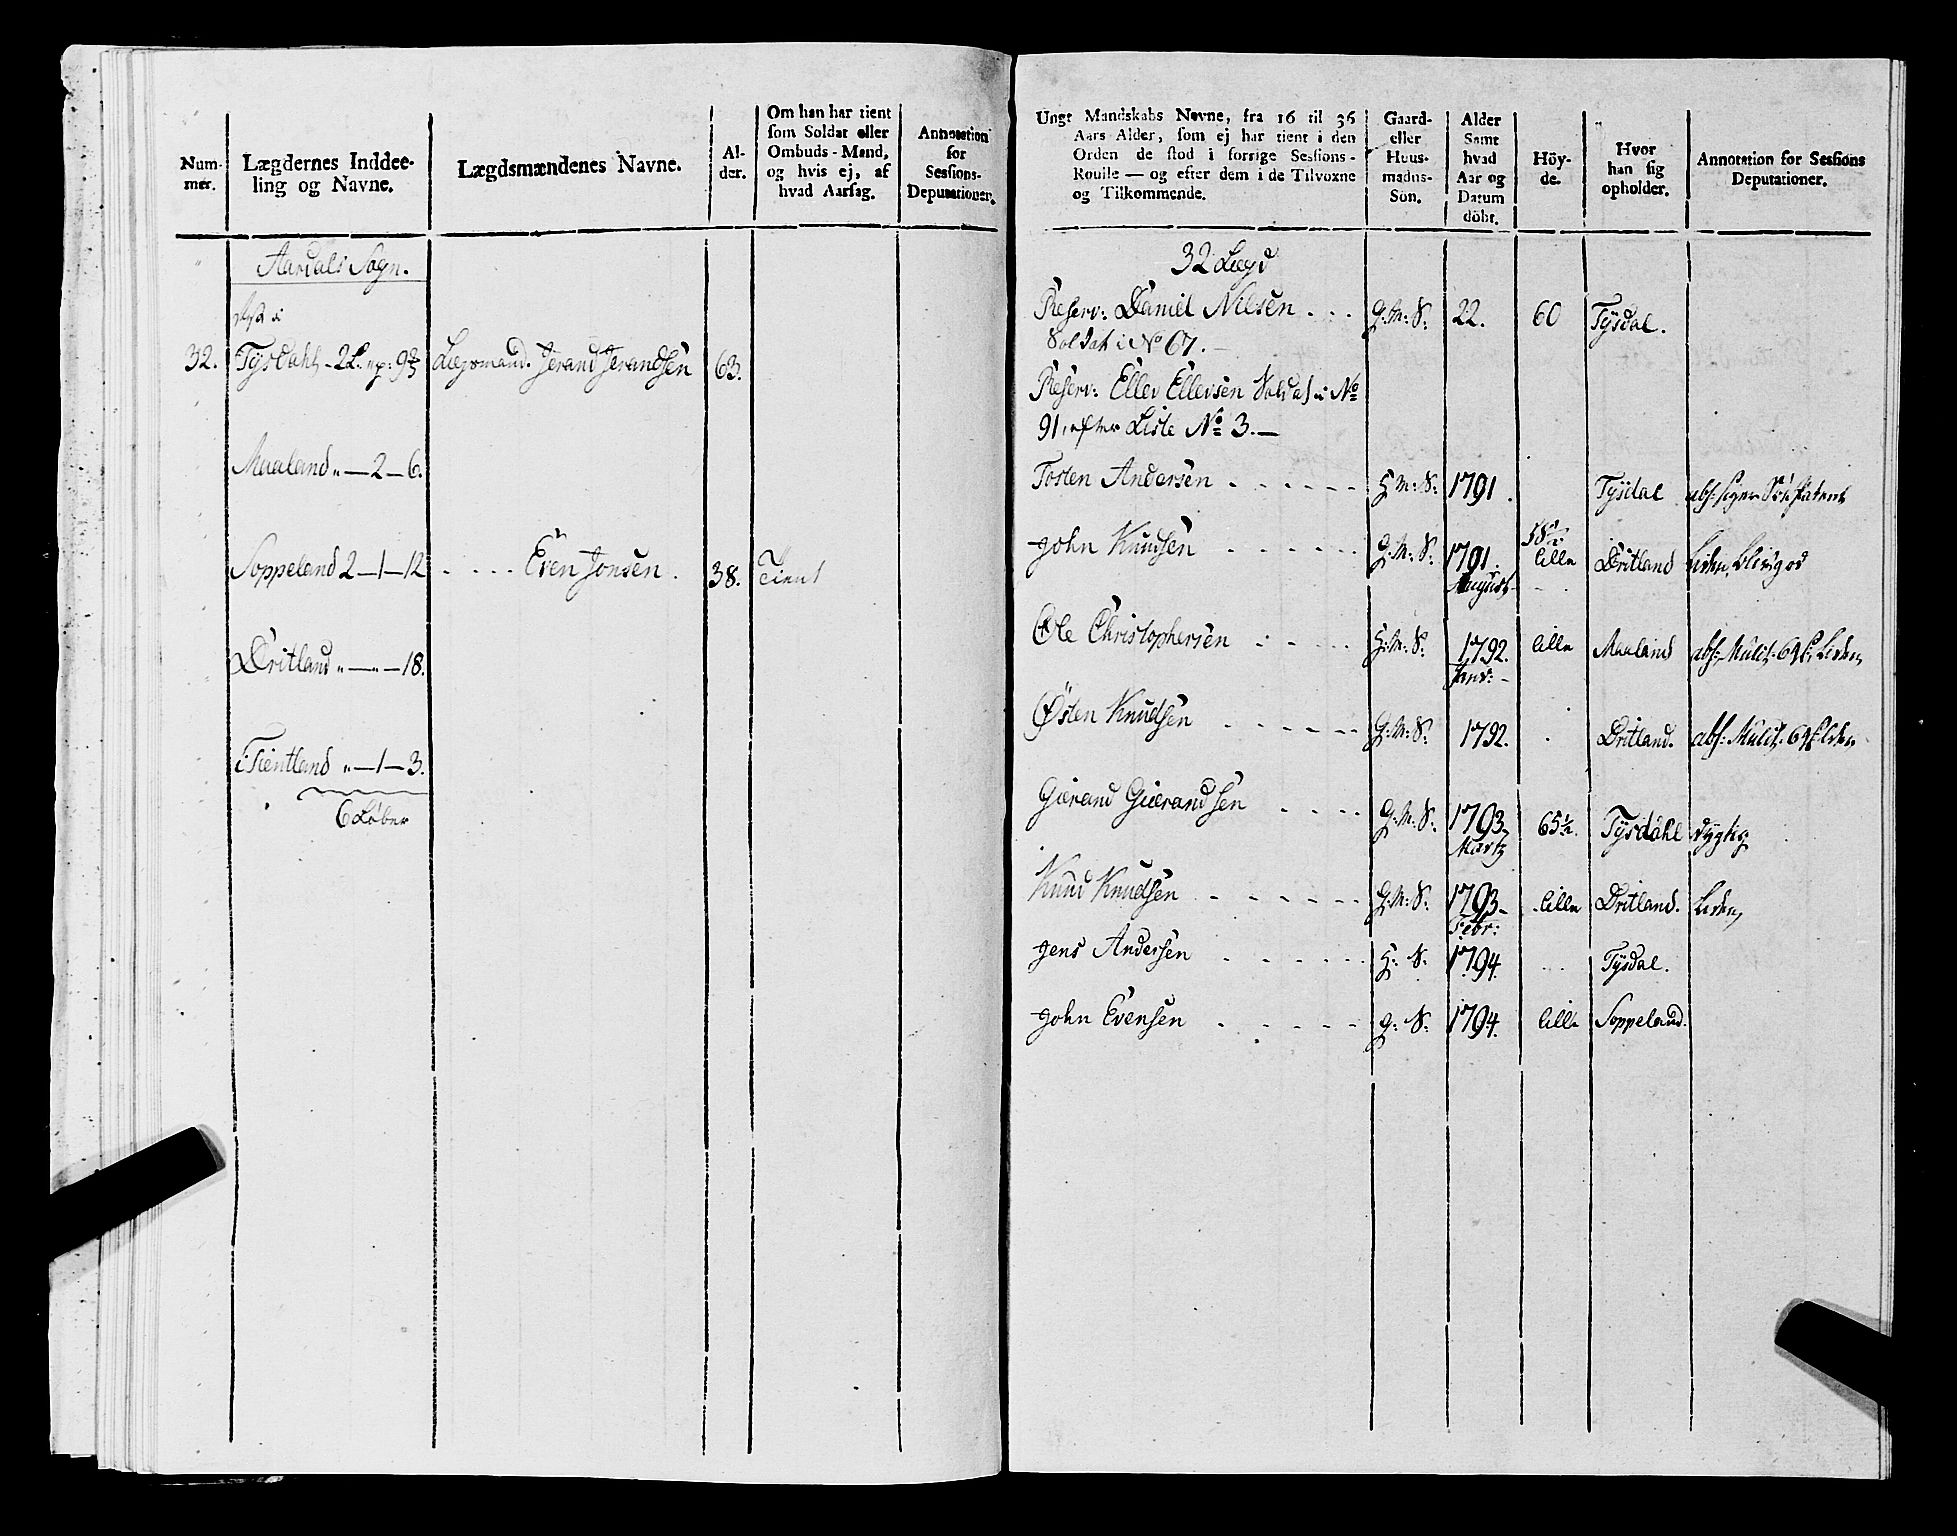 Num-
mer.
Lægdernes Inddee-
ling og Navne.
Lægdsmændenes Navne.
Al-
der.
Om han har tient
som Soldat eller
Ombuds-Mand,
og hvis ej, af
hvad Aarsag.
Annotation
for
Sessions-
Deputationer.
Aardals Sogn.
32. Tÿsdahl - 2 L. Liegsmand. Jerand Jerandsen 63.
Maaland „ — 2 — 6.
Soppeland 2 — 1 — 12 - - - - Even Jonsen. 38. Tient
Dritland „ — „ — 18.
Tientland „ — 1 — 3.
6 Løber
Ungt Mandskabs Navne, fra 16 til 36
Aars Alder, som ej har tient i den
Orden de stod i forrige Sessions-
Roulle — og efter dem i de Tilvoxne
og Tilkommende.
Gaard-
eller
Huus-
mands-
Sön.
Alder
Samt
hvad
Aar og
Datum
döbt.
Höy-
de.
Hvor
han sig
opholder.
Annotation for Sessions
Deputationer.
32 Lægd
Reserv: Daniel Nilsen . . . G: M: S: 22. 60 Tÿsdal.
Soldat i No 67. —
Reserv: Ellev Ellevsen Soldat i No
91. efter Liste No 3. —
Tosten Andersen - - - - - - H: M: S: 1791. Tÿsdal
John Knudsen - - - - - - G: M: S: 1791. lille Dritland
August
Ole Christophersen - - - - H: M: S: 1792. lille Maaland
Janv: -
Østen Knudsen - - - - - - G: M: S: 1792. Dritland.
Gierand Gierandsen - - - - G: M: S: 1793. 65½. Tÿsdahl dygtig
Martz
Knud Knudsen - - - - - - G: M: S: 1793 - lille Dritland. Liden,
Febr:
Jens Andersen - - - - - - H: S: 1794. Tÿsdal.
John Evensen - - - - - G: S: 1794. lille Soppeland.